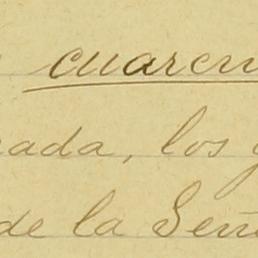 cuaren
rada, los
de la Seño